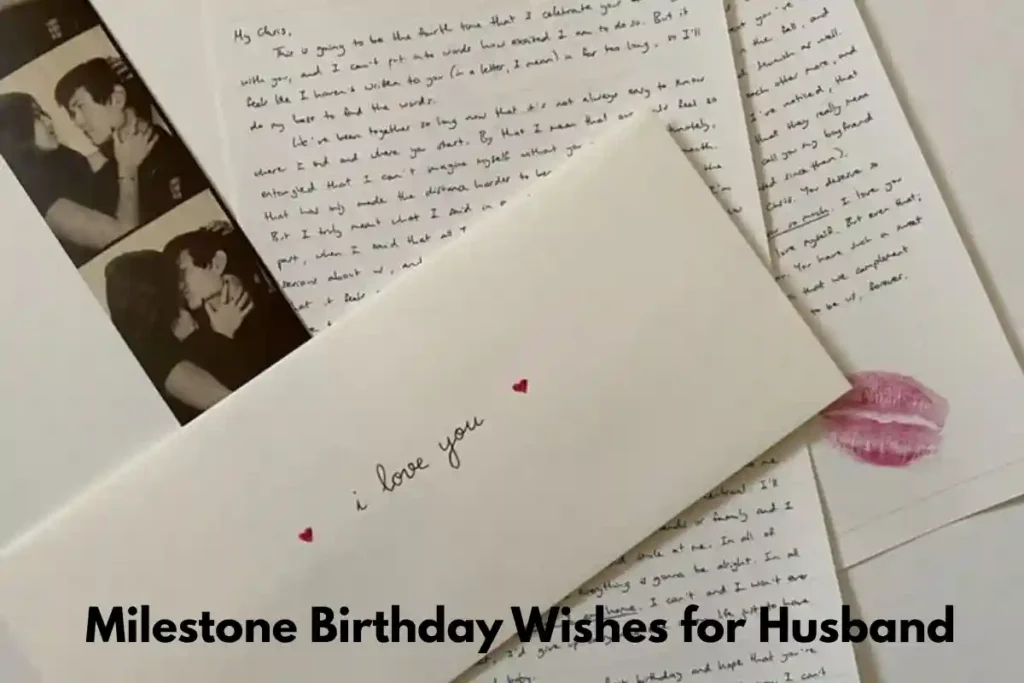 My Chris,
This is going to be the fourth time that I celebrate your
with you, and I can't put into words how excited I am to do so. But it
feels like I haven't written to you (in a letter, I mean) in far too long, so I'll
do my best to find the words.
We've been together so long now that it's not always easy to know
where I end and where you start. By that I mean that our
feel so
entangled that I can't imagine myself without you
that has only made the distance harder to
But I truly meant what I said in
part, when I said that at
serious about us, and
at it feels
you've
the fall, and
as well.
each other more, and
I've noticed, that
that they really mean
call you my boyfriend
since then).
Chris. You deserve so
so much. I love you
myself. But even that,
You have such a sweet
that we complement
to be us, forever.
i love you
me
I'll
or family and I
smile at me. In all of
everything is gonna be alright. In all
home. I can't and I won't ever
life just to have
I'd give up
baby.
birthday and hope that you're
I can't
Milestone Birthday Wishes for Husband